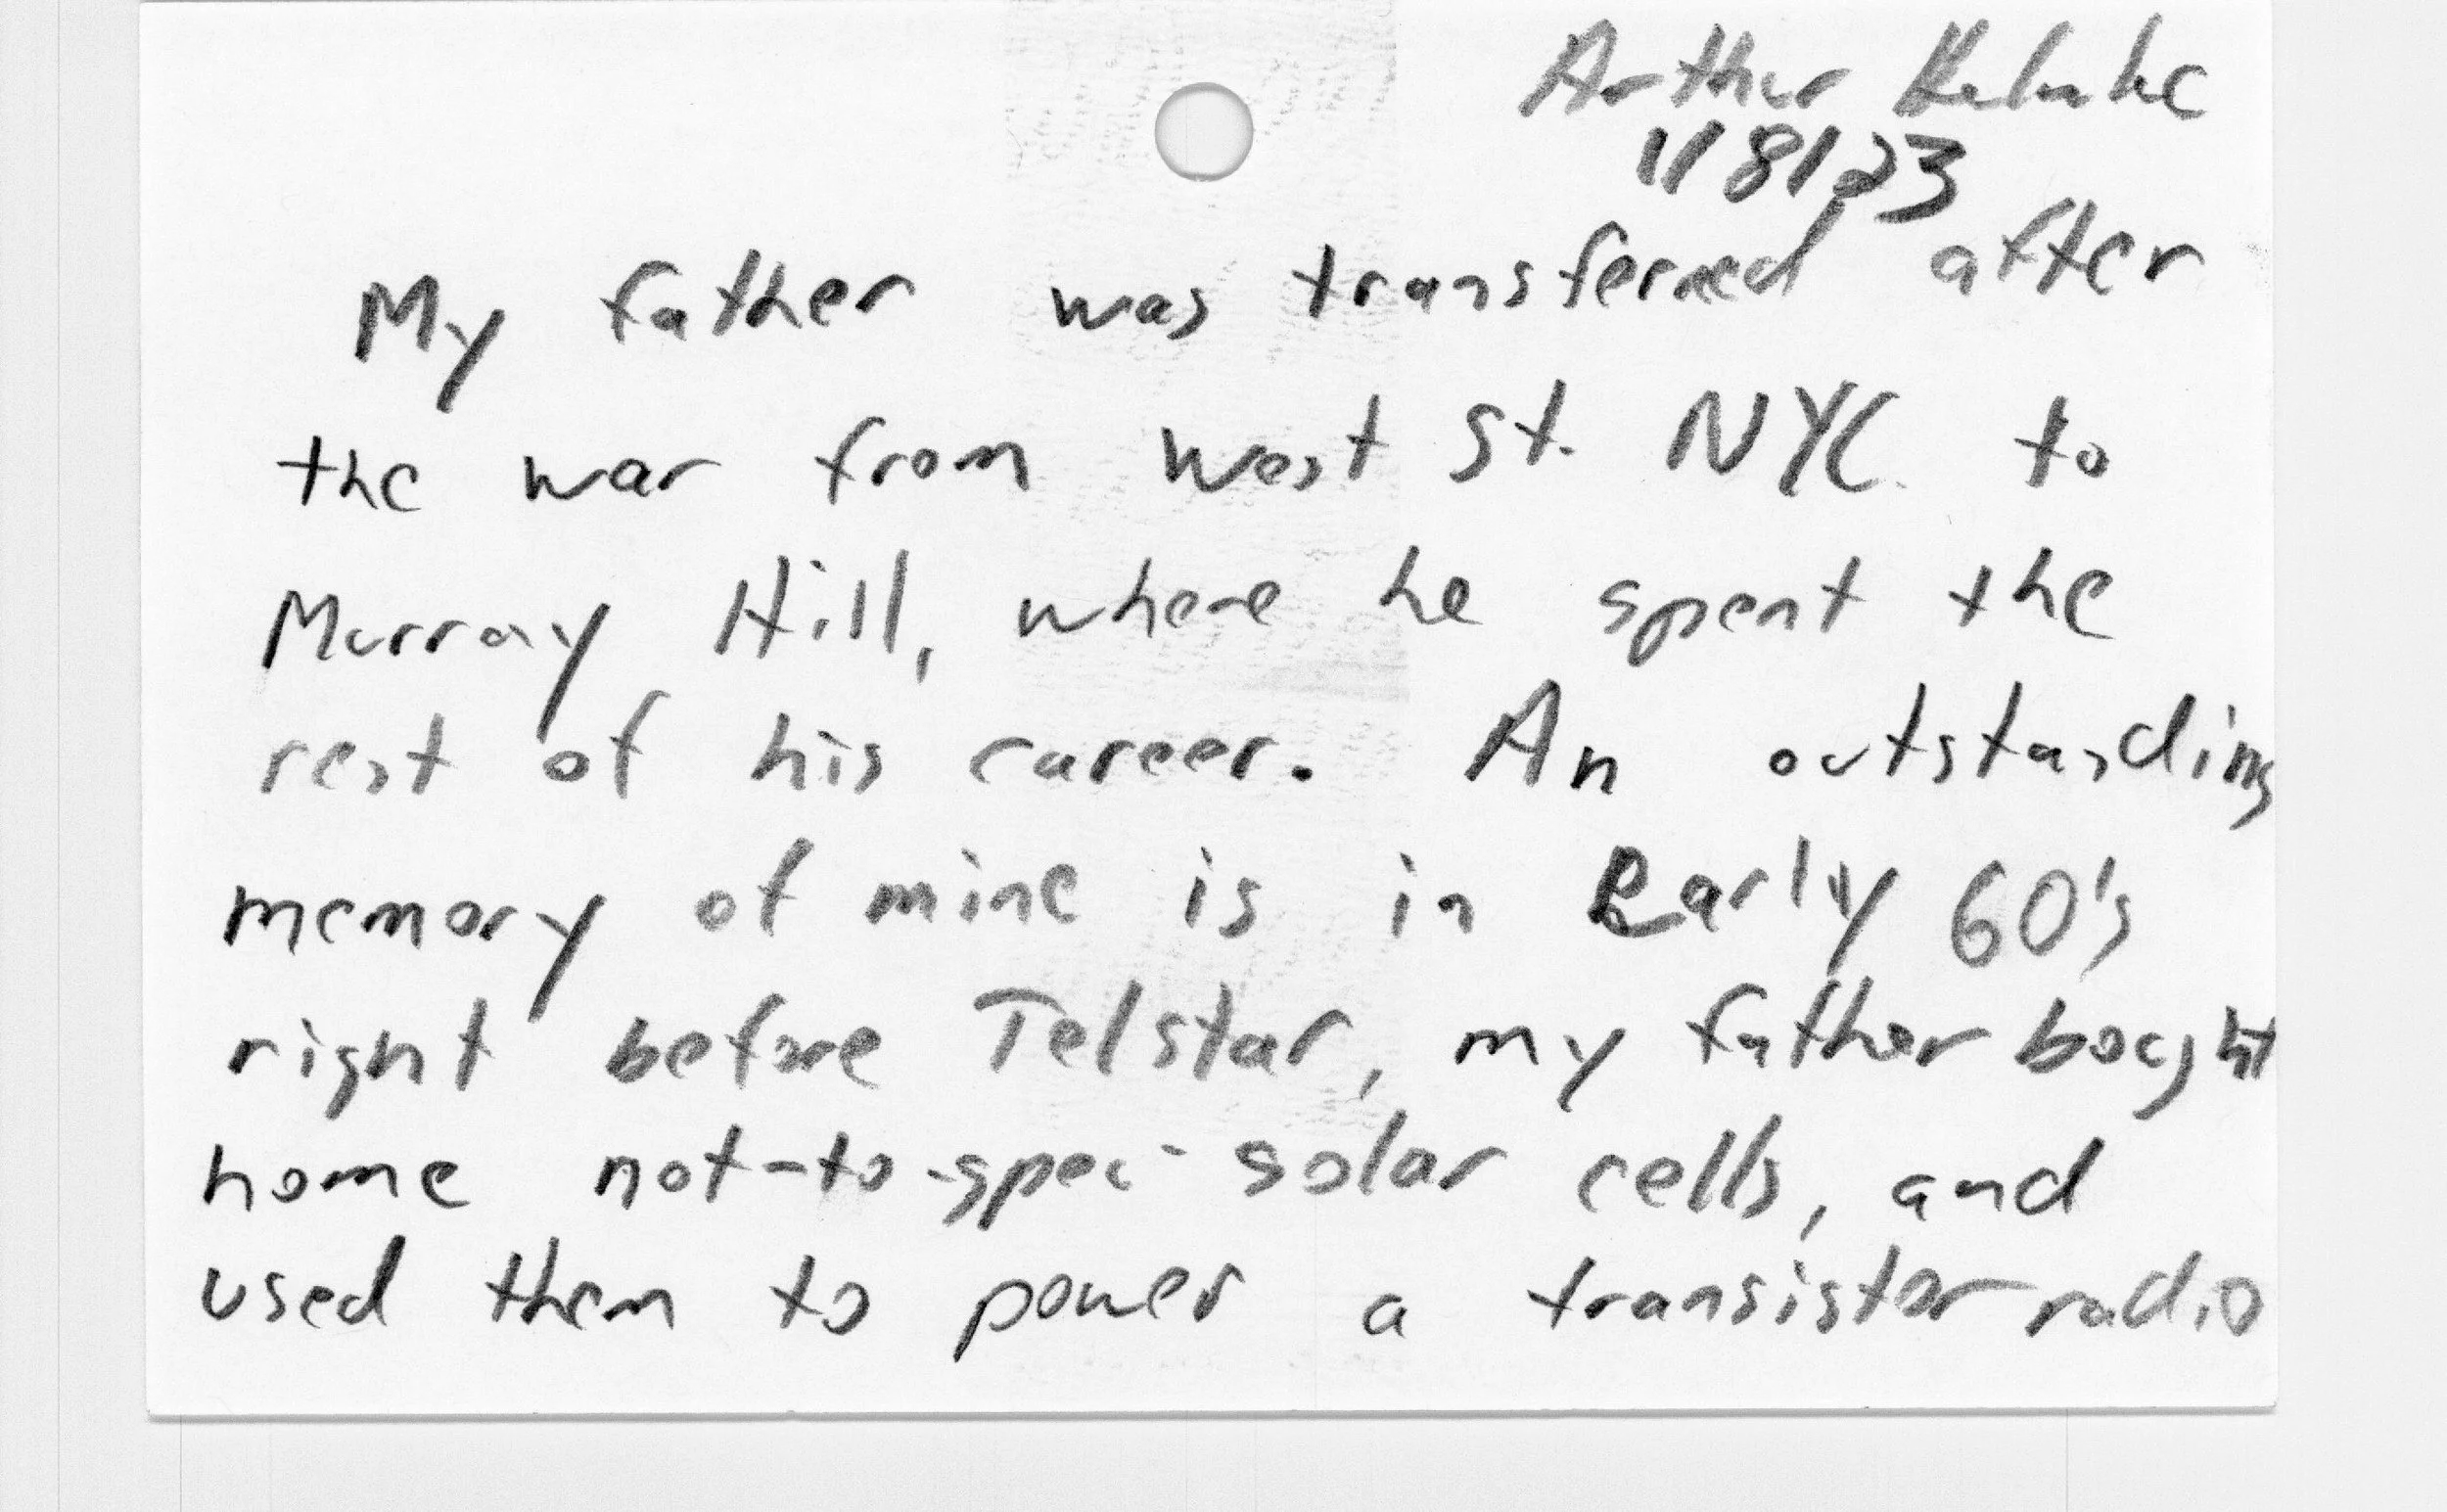 Arthur
1/8/23
My father was transferred after
the war from West St. NYC to
Murray Hill, where he spent the
rest of his career. An outstanding
memory of mine is in Early 60's
right before Telstar, my father bought
home not-to-spec- solar cells, and
used them to power a transistor radio